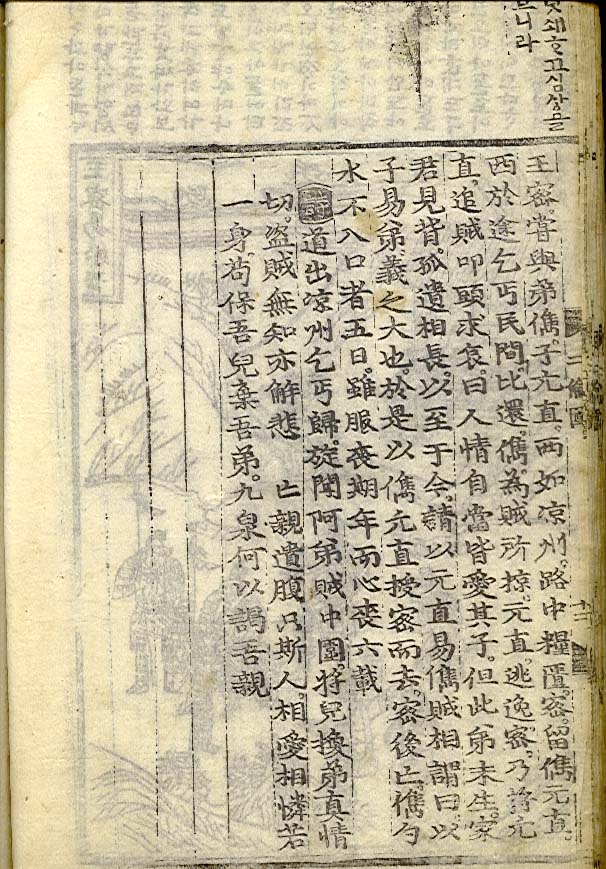 쇄ᄒᆞ고심상을
니라
王密嘗與弟儁子元直西如凉州路中糧匱密留儁元直
西於途乞丐民間比還儁為賊所掠元直逃逸密乃將元
直追賊叩頭求哀曰人情自當皆愛其子但此弟未生家
君見背孤遺相長以至于今請以元直易儁賊相謂曰以
子易弟義之大也於是以儁元直授密而去密後亡儁勺
水不入口者五日雖服喪期年而心喪六載
詩道出凉州乞丐歸旋聞阿弟賊中圍將兒換弟真情
切盜賊無知亦解悲 亡親遺腹只斯人相愛相憐若
一身苟保吾兒棄吾弟九泉何以謁吾親